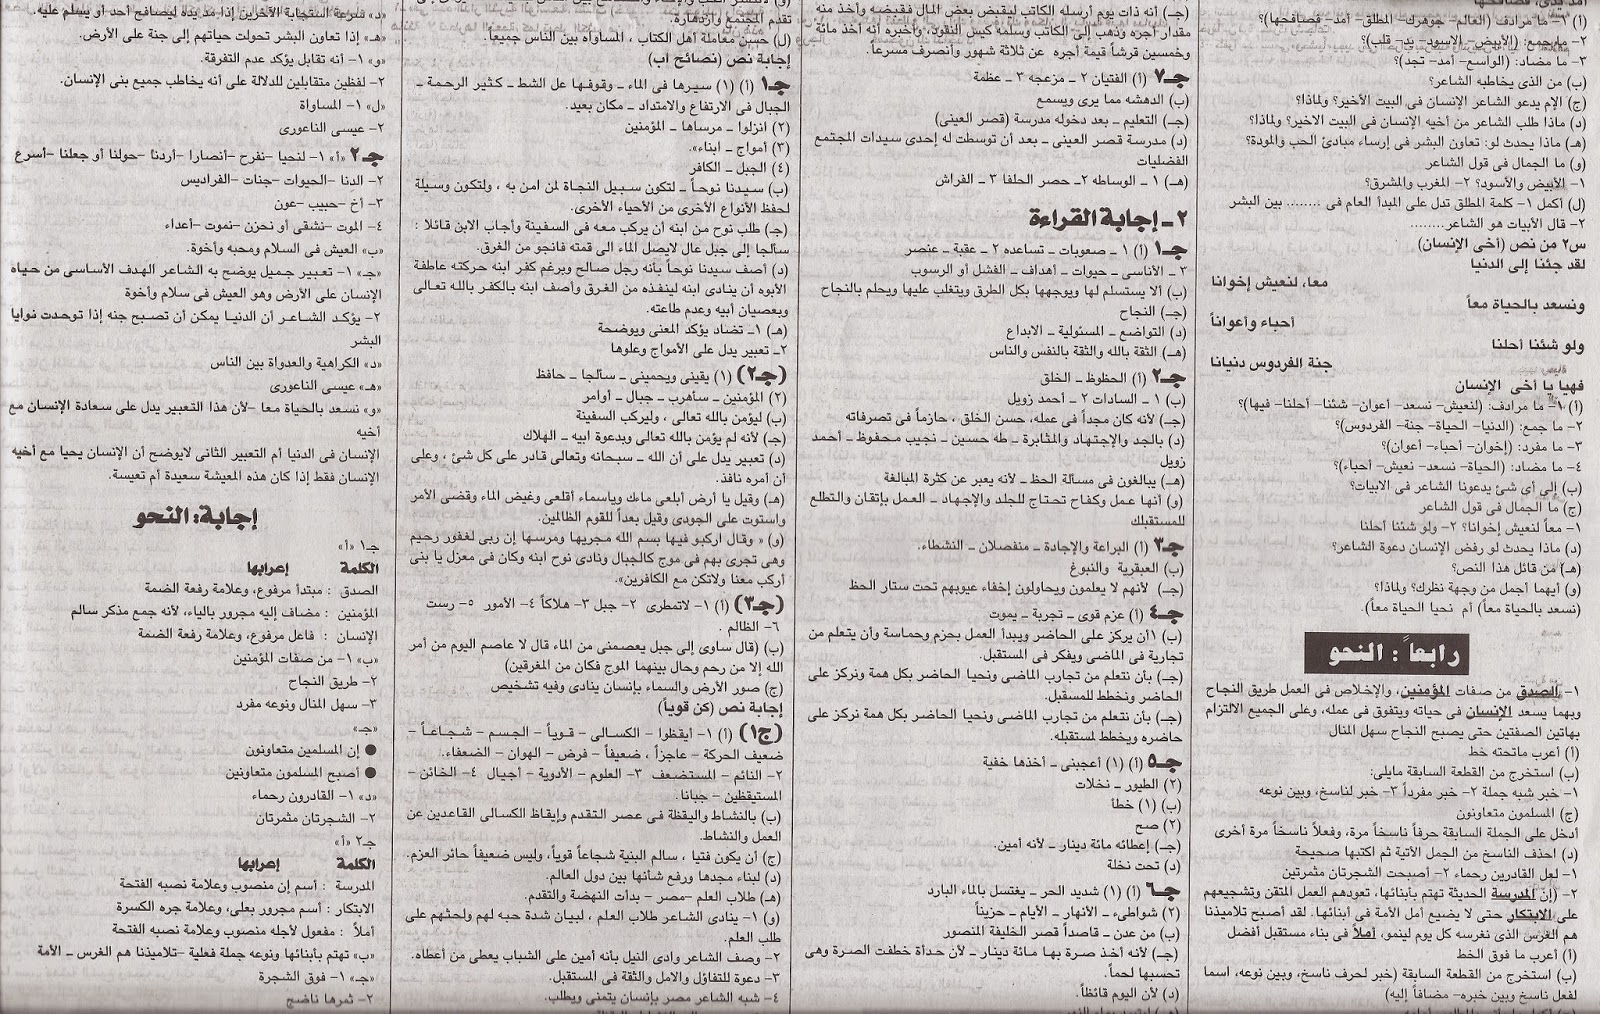 أمد يدى، فصافحها
(أ) ١- ما مرادف (العالم- جوهرك- المطلق- أمد- فصافحها)؟
٢- ما جمع: (الأبيض- الأسود- يد- قلب)؟
٣- ما مضاد: (الواسع- أمد- تجد)؟
(ب) من الذى يخاطبه الشاعر؟
(ج) الإم يدعو الشاعر الإنسان فى البيت الأخير؟ ولماذا؟
(د) ماذا طلب الشاعر من أخيه الإنسان فى البيت الاخير؟ ولماذا؟
(هـ) ماذا يحدث لو: تعاون البشر فى إرساء مبادئ الحب والمودة؟
(و) ما الجمال فى قول الشاعر
١- الأبيض والأسود؟ ٢- المغرب والمشرق؟
(ل) أكمل ١- كلمة المطلق تدل على المبدأ العام فى ........ بين البشر
٢- قال الأبيات هو الشاعر.........
س٢ من نص (أخى الإنسان)
لقد جئنا إلى الدنيا
معا، لنعيش إخوانا
ونسعد بالحياة معاً
أحباء وأعواناً
ولو شئنا أحلنا
جنة الفردوس دنيانا
فهيا يا أخى الإنسان
(أ) ١- ما مرادف: (لنعيش- نسعد- أعوان- شئنا- أحلنا- فيها)؟
٢- ما جمع: (الدنيا- الحياة- جنة- الفردوس)؟
٣- ما مفرد: (إخوان- أحباء- أعوان)؟
٤- ما مضاد: (الحياة- نسعد- نعيش- أحباء)؟
(ب) إلى أى شئ يدعونا الشاعر فى الابيات؟
(ج) ما الجمال فى قول الشاعر
١- معاً لنعيش إخوانا؟ ٢- ولو شئنا أحلنا
(د) ماذا يحدث لو رفض الإنسان دعوة الشاعر؟
(هـ) من قائل هذا النص؟
(و) أيهما أجمل من وجهة نظرك؟ ولماذا؟
(نسعد بالحياة معاً) أم نحيا الحياة معاً).
رابعاً : النحو
١- الصدق من صفات المؤمنين، والإخلاص فى العمل طريق النجاح
وبهما يسعد الإنسان فى حياته ويتفوق فى عمله، وعلى الجميع الالتزام
بهاتين الصفتين حتى يصبح النجاح سهل المنال
(أ) أعرب ماتحته خط
(ب) استخرج من القطعة السابقة مايلى:
١- خبر شبه جملة ٢- خبر مفرداً ٣- خبر لناسخ، وبين نوعه
(ج) المسلمون متعاونون
أدخل على الجملة السابقة حرفاً ناسخاً مرة، وفعلاً ناسخاً مرة أخرى
(د) احذف الناسخ من الجمل الآتية ثم اكتبها صحيحة
١- لعل القادرين رحماء ٢- أصبحت الشجرتان مثمرتين
٢- (إن المدرسة الحديثة تهتم بأبنائها، تعودهم العمل المتقن وتشجيعهم
على الابتكار حتى لا يضيع أمل الأمة فى أبنائها. لقد أصبح تلاميذنا
هم الغرس الذى نغرسه كل يوم لينمو، أملاً فى بناء مستقبل أفضل
(أ) أعرب ما فوق الخط
(ب) استخرج من القطعة السابقة (خبر لحرف ناسخ، وبين نوعه، اسما
لفعل ناسخ وبين خبره- مضافاً إليه)
(جـ) أنه ذات يوم أرسله الكاتب ليقبض بعض المال فقبضه وأخذ منه
مقدار أجره وذهب إلى الكاتب وسلمه كيس النقود، وأخبره أنه أخذ مائة
وخمسين قرشاً قيمة أجره عن ثلاثة شهور وانصرف مسرعاً.
جـ٧ (أ) الفتيان ٢ـ مزعجه ٣ـ عظمة
(ب) الدهشه مما يرى ويسمع
(جـ) التعليم ـ بعد دخوله مدرسة (قصر العينى)
(د) مدرسة قصر العينى ـ بعد أن توسطت له إحدى سيدات المجتمع
الفضليات
(هـ) ١ ـ الوساطه ٢ـ حصر الحلفا ٣ـ الفراش
٢ـ إجابة القراءة
جـ١ (أ) ١ ـ صعوبات ـ تساعده ٢ ـ عقبة ـ عنصر
٣ ـ الأناسى ـ حيوات ـ أهداف ـ الفشل أو الرسوب
(ب) ألا يستسلم لها ويوجهها بكل الطرق ويتغلب عليها ويحلم بالنجاح
(جـ) النجاح
(د) التواضع ـ المسئولية ـ الابداع
(هـ) الثقة بالله والثقة بالنفس والناس
جـ٢ (أ) الحظوظ ـ الخلق
(ب) ١ ـ السادات ٢ ـ أحمد زويل
(جـ) لأنه كان مجداً فى عمله، حسن الخلق ، حازماً فى تصرفاته
(د) بالجد والإجتهاد والمثابرة ـ طه حسين ـ نجيب محفوظ ـ أحمد
زويل
(هـ) يبالغون فى مسألة الحظ ـ لأنه يعبر عن كثرة المبالغة
(و) أنها عمل وكفاح تحتاج للجلد والإجهاد ـ العمل بإتقان والتطلع
للمستقبلك
جـ٣ (أ) البراعة والإجادة ـ منفصلان ـ النشطاء.
(ب) العبقرية والنبوغ
(جـ) لأنهم لا يعلمون ويحاولون إخفاء عيوبهم تحت ستار الحظ
جـ٤ (أ) عزم قوى ـ تجربة ـ يموت
(ب) ١أن يركز على الحاضر ويبدأ العمل بحزم وحماسة وأن يتعلم من
تجاربة فى الماضى ويفكر فى المستقبل.
(جـ) بأن نتعلم من تجارب الماضى ونحيا الحاضر بكل همة ونركز على
الحاضر ونخطط للمسقبل.
(جـ) بأن نتعلم من تجارب الماضى ونحيا الحاضر بكل همة نركز على
حاضره ويخطط لمستقبله.
جـ٥ (أ) (١) أعجبنى ـ أخذها خفية
(٢) الطيور ـ نخلات
(ب) (١) خطأ
(٢) صح
(جـ) إعطائه مائة دينار ـ لأنه أمين.
(د) تحت نخلة
جـ٦ (أ) (١) شديد الحر ـ يغتسل بالماء البارد
(٢) شواطىء ـ الأنهار ـ الأيام ـ حزيناً
(ب) من عدن ـ قاصداً قصر الخليفة المنصور
(جـ) لأنه أخذ صرة بها مائة دينار ـ لأن حدأة خطفت الصرة وهى
تحسبها لحماً.
(د) لأن اليوم قائظاً.
تقدم المجتمع وازدهاره.
(ل) حسن معاملة أهل الكتاب ، المساواه بين الناس جميعاً
إجابة نص (نصائح أب)
جـ١ (أ) (١) سيرها فى الماء ـ وقوفها عل الشط ـ كثير الرحمة ـ
الجبال فى الارتفاع والامتداد ـ مكان بعيد.
(٢) انزلوا ـ مرساها ـ المؤمنين
(٣) أمواج ـ ابناء».
(٤) الجبل ـ الكافر
(ب) سيدنا نوحاً ـ لتكون سبيل النجاة لمن امن به ، ولتكون وسيلة
لحفظ الأنواع الأخرى من الأحياء الأخرى.
(جـ) طلب نوح من ابنه أن يركب معه فى السفينة وأجاب الابن قائلا :
سألجا إلى جبل عال لايصل الماء الى قمته فانجو من الغرق.
(د) أصف سيدنا نوحاً بأنه رجل صالح وبرغم كفر ابنه حركته عاطفة
الأبوه أن ينادى ابنه لينقذه من الغرق وأصف ابنه بالكفر بالله تعالى
وبعصيان أبيه وعدم طاعته.
(هـ) ١ـ تضاد يؤكد المعنى ويوضحة
٢ـ تعبير يدل على الأمواج وعلوها
(جـ٢) (١) يقينى ويحمينى ـ سألجا ـ حافظ
(٢) المؤمنين ـ سأهرب ـ جبال ـ أوامر
(ب) ليؤمن بالله تعالى ، وليركب السفينة
(جـ) لأنه لم يؤمن بالله تعالى وبدعوة ابيه ـ الهلاك
(د) تعبير يدل على أن الله ـ سبحانه وتعالى قادر على كل شئ ، وعلى
أن أمره نافذ.
(هـ) وقيل يا أرض أبلعى ماءك وياسماء أقلعى وغيض الماء وقضى الأمر
واستوت على الجودى وقيل بعداً للقوم الظالمين.
(و) « وقال اركبو فيها بسم الله مجريها ومرسها إن ربى لغفور رحيم
وهى تجرى بهم فى موج كالجبال ونادى نوح ابنه وكان فى معزل يا بنى
أركب معنا ولاتكن مع الكافرين».
(جـ٣) (أ) ١- لاتمطرى ٢- جبل ٣- هلاكاً ٤- الأمور ٥- رست
٦- الظالم .
(ب) (قال ساوى إلى جبل يعصمنى من الماء قال لا عاصم اليوم من أمر
الله إلا من رحم وحال بينهما الموج فكان من المغرقين)
(ج) صور الأرض والسماء بإنسان ينادى وفيه تشخيص
إجابة نص (كن قوياً)
(ج١) (أ) ١- أيقظوا - الكسالى - قوياً - الجسم - شجاعاً -
ضعيف الحركة - عاجزاً ، ضعيفاً - فرض - الهوان - الضعفاء.
٢- النائم - المستضعف ٣- العلوم - الأدوية - أجيال ٤- الخائن -
المستيقظين - جبانا.
(ب) بالنشاط واليقظة فى عصر التقدم وإيقاظ الكسالى القاعدين عن
العمل والنشاط.
(ج) أن يكون فتيا ، سالم البنية شجاعاً قوياً، وليس ضعيفاً حائر العزم.
(د) لبناء مجدها ورفع شأنها بين دول العالم.
(هـ) طلاب العلم -مصر - بدأت النهضة والتقدم.
(و) ١- ينادى الشاعر طلاب العلم ، لبيان شدة حبه لهم ولحثهم على
طلب العلم.
٢- وصف الشاعر وادى النيل بأنه أمين على الشباب يعطى من أعطاه.
٣- دعوة للتفاؤل والامل والثقة فى المستقبل.
٤- شبه الشاعر مصر بإنسان يتمنى ويطلب.
«د» سرعة استجابة الآخرين إذا مد يده ليصافح أحد أو يسلم عليه.
«هـ» إذا تعاون البشر تحولت حياتهم إلى جنة على الأرض.
«و» ١- أنه تقابل يؤكد عدم التفرقة.
٢- لفظين متقابلين للدلالة على أنه يخاطب جميع بنى الإنسان.
«ل» ١- المساواة
٢- عيسى الناعورى
جـ٢ «أ» ١- لنحيا -نفرح -أنصارا -أردنا- حولنا أو جعلنا -أسرع
٢- الدنا -الحيوات -جنات -الفراديس
٣- أخ -حبيب -عون
٤- الموت -نشقى أو نحزن -نموت -أعداء
«ب» العيش فى السلام ومحبه وأخوة.
«جـ» ١- تعبير جميل يوضح به الشاعر الهدف الأساسى من حياه
الإنسان على الأرض وهو العيش فى سلام وأخوة
٢- يؤكد الشاعر أن الدنيا يمكن أن تصبح جنه إذا توحدت نوايا
البشر
«د» الكراهية والعدواة بين الناس
«هـ» عيسى الناعورى
«و» نسعد بالحياة معا -لأن هذا التعبير يدل على سعادة الإنسان مع
أخيه
الإنسان فى الدنيا أم التعبير الثانى لايوضح أن الإنسان يحيا مع أخيه
الإنسان فقط إذا كان هذه المعيشة سعيدة أم تعيسة.
إجابة: النحو
جـ١ «أ»
الكلمة إعرابها
الصدق : مبتدأ مرفوع، وعلامة رفعة الضمة
المؤمنين : مضاف إليه مجرور بالياء، لأنه جمع مذكر سالم
الإنسان : فاعل مرفوع، وعلامة رفعة الضمة
«ب» ١- من صفات المؤمنين
٢- طريق النجاح
٣- سهل المنال ونوعه مفرد
«جـ»
● إن المسلمين متعاونون
● أصبح المسلمون متعاونين
«د» ١- القادرون رحماء
٢- الشجرتان مثمرتان
جـ٢ «أ»
الكلمة إعرابها
المدرسة : أسم إن منصوب وعلامة نصبه الفتحة
الابتكار : أسم مجرور بعلى، وعلامة جره الكسرة
أملاً : مفعول لأجله منصوب وعلامة نصبه الفتحة
«ب» تهتم بأبنائها ونوعه جملة فعلية -تلاميذنا هم الغرس ـ الأمة
«جـ» ١- فوق الشجرة
٢- ثمرها ناضج